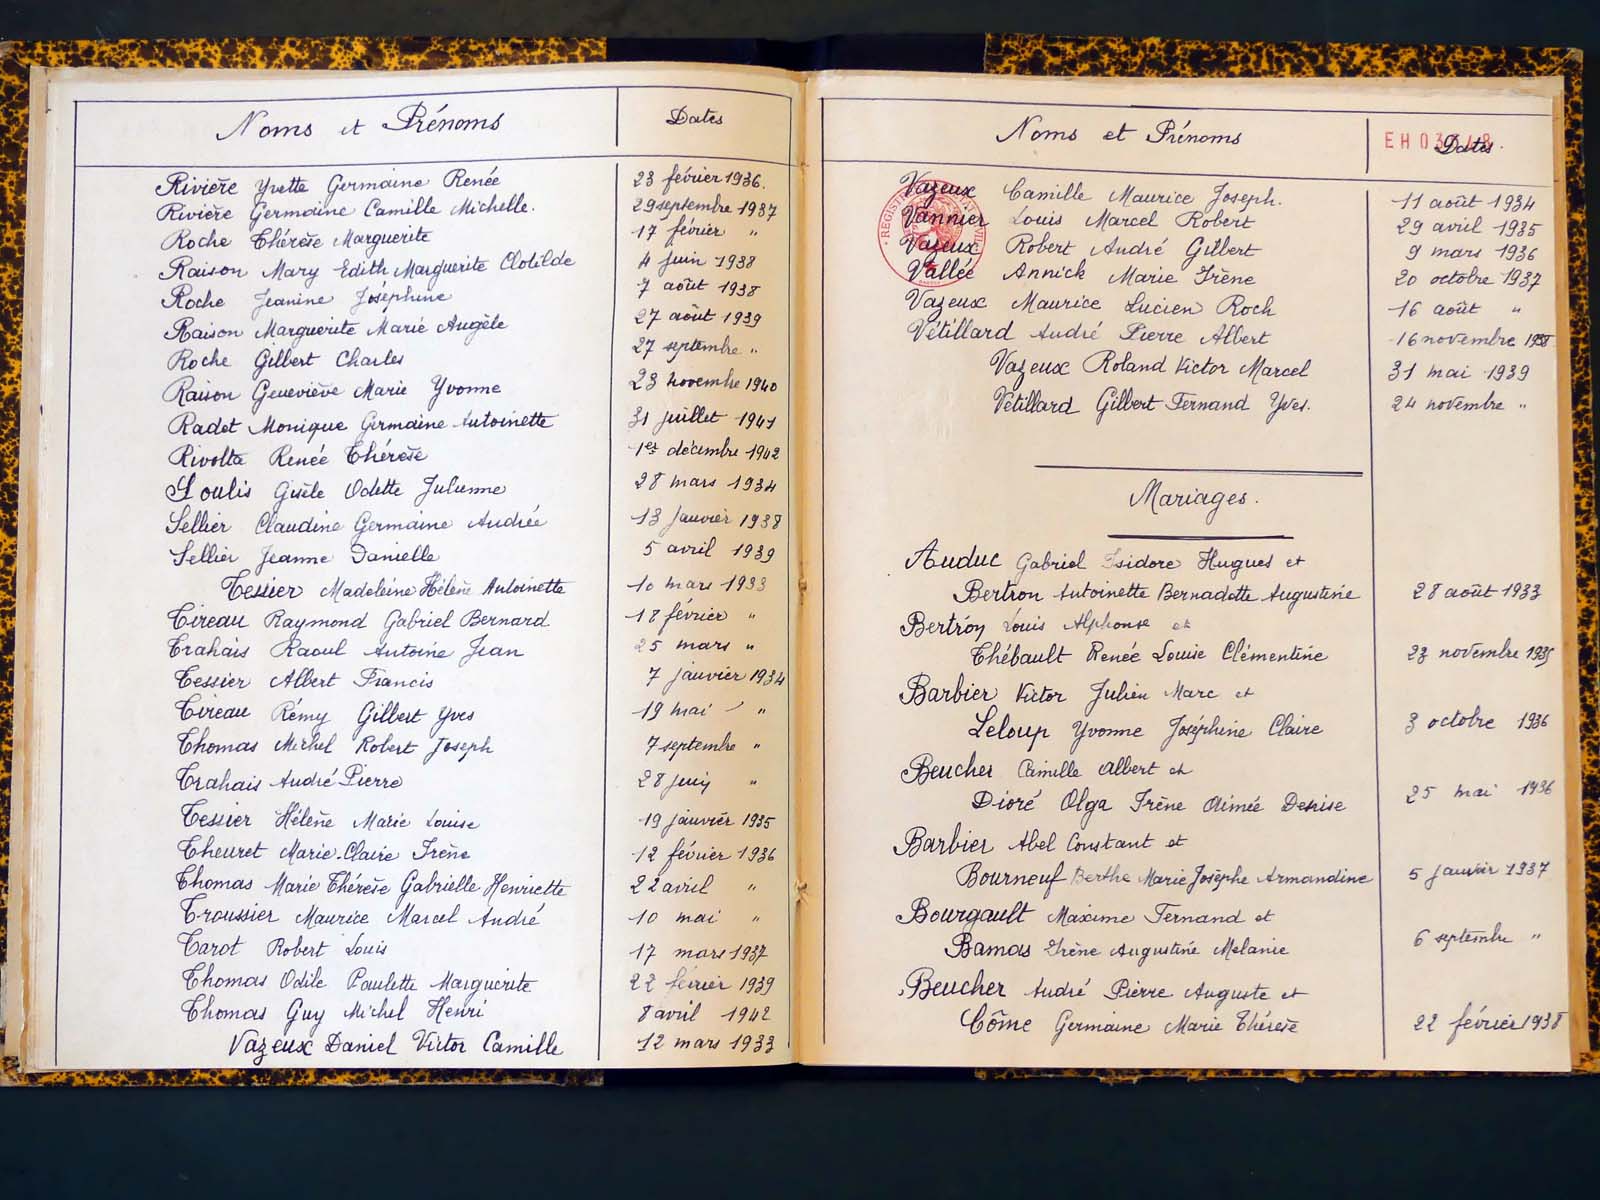 Noms et Prénoms Dates
Rivière Yvette Germaine Renée 23 février 1936.
Rivière Germaine Camille Michelle. 29 septembre 1937
Roche Thérèse Marguerite 17 février "
Raison Mary Edith Marguerite Clotilde 4 juin 1938
Roche Jeanine Joséphine 7 août 1938
Raison Marguerite Marie Angèle 27 août 1939
Roche Gilbert Charles 27 septembre "
Raison Geneviève Marie Yvonne 23 novembre 1940
Radet Monique Germaine Antoinette 31 juillet 1941
Rivolta Renée Thérèse 1er décembre 1942
Soulis Gisèle Odette Julienne 28 mars 1934
Sellier Claudine Germaine Andrée 13 janvier 1938
Sellier Jeanne Danielle 5 avril 1939
Tessier Madeleine Hélène Antoinette 10 mars 1933
Tireau Raymond Gabriel Bernard 18 février "
Trahais Raoul Antoine Jean 25 mars "
Tessier Albert Francis 7 janvier 1934
Tireau Rémy Gilbert Yves 19 mai "
Thomas Michel Robert Joseph 7 septembre "
Trahais André Pierre 28 juin "
Tessier Hélène Marie Louise 19 janvier 1935
Theuret Marie-Claire Irène 12 février 1936
Thomas Marie Thérèse Gabrielle Henriette 22 avril "
Troussier Maurice Marcel André 10 mai "
Tarot Robert Louis 17 mars 1937
Thomas Odile Paulette Marguerite 22 février 1939
Thomas Guy Michel Henri 8 avril 1942
Vazeux Daniel Victor Camille 12 mars 1933
Noms et Prénoms Dates.
Vazeux Camille Maurice Joseph. 11 août 1934
Vannier Louis Marcel Robert 29 avril 1935
Vazeux Robert André Gilbert 9 mars 1936
Vallée Annick Marie Irène 20 octobre 1937
Vazeux Maurice Lucien Roch 16 août "
Vétillard André Pierre Albert 16 novembre 1938
Vazeux Roland Victor Marcel 31 mai 1939
Vétillard Gilbert Fernand Yves. 24 novembre "
Mariages.
Auduc Gabriel Isidore Hugues et
Bertron Antoinette Bernadette Augustine 28 août 1933
Bertron Louis Alphonse et
Thébault Renée Louise Clémentine 23 novembre 1935
Barbier Victor Julien Marc et
Leloup Yvonne Joséphine Claire 3 octobre 1936
Beucher Camille Albert et
Dioré Olga Irène Aimée Denise 25 mai 1936
Barbier Abel Constant et
Bourneuf Berthe Marie Josèphe Armandine 5 janvier 1937
Bourgault Maxime Fernand et
Bamas Irène Augustine Mélanie 6 septembre "
Beucher André Pierre Auguste et
Côme Germaine Marie Thérèse 22 février 1938